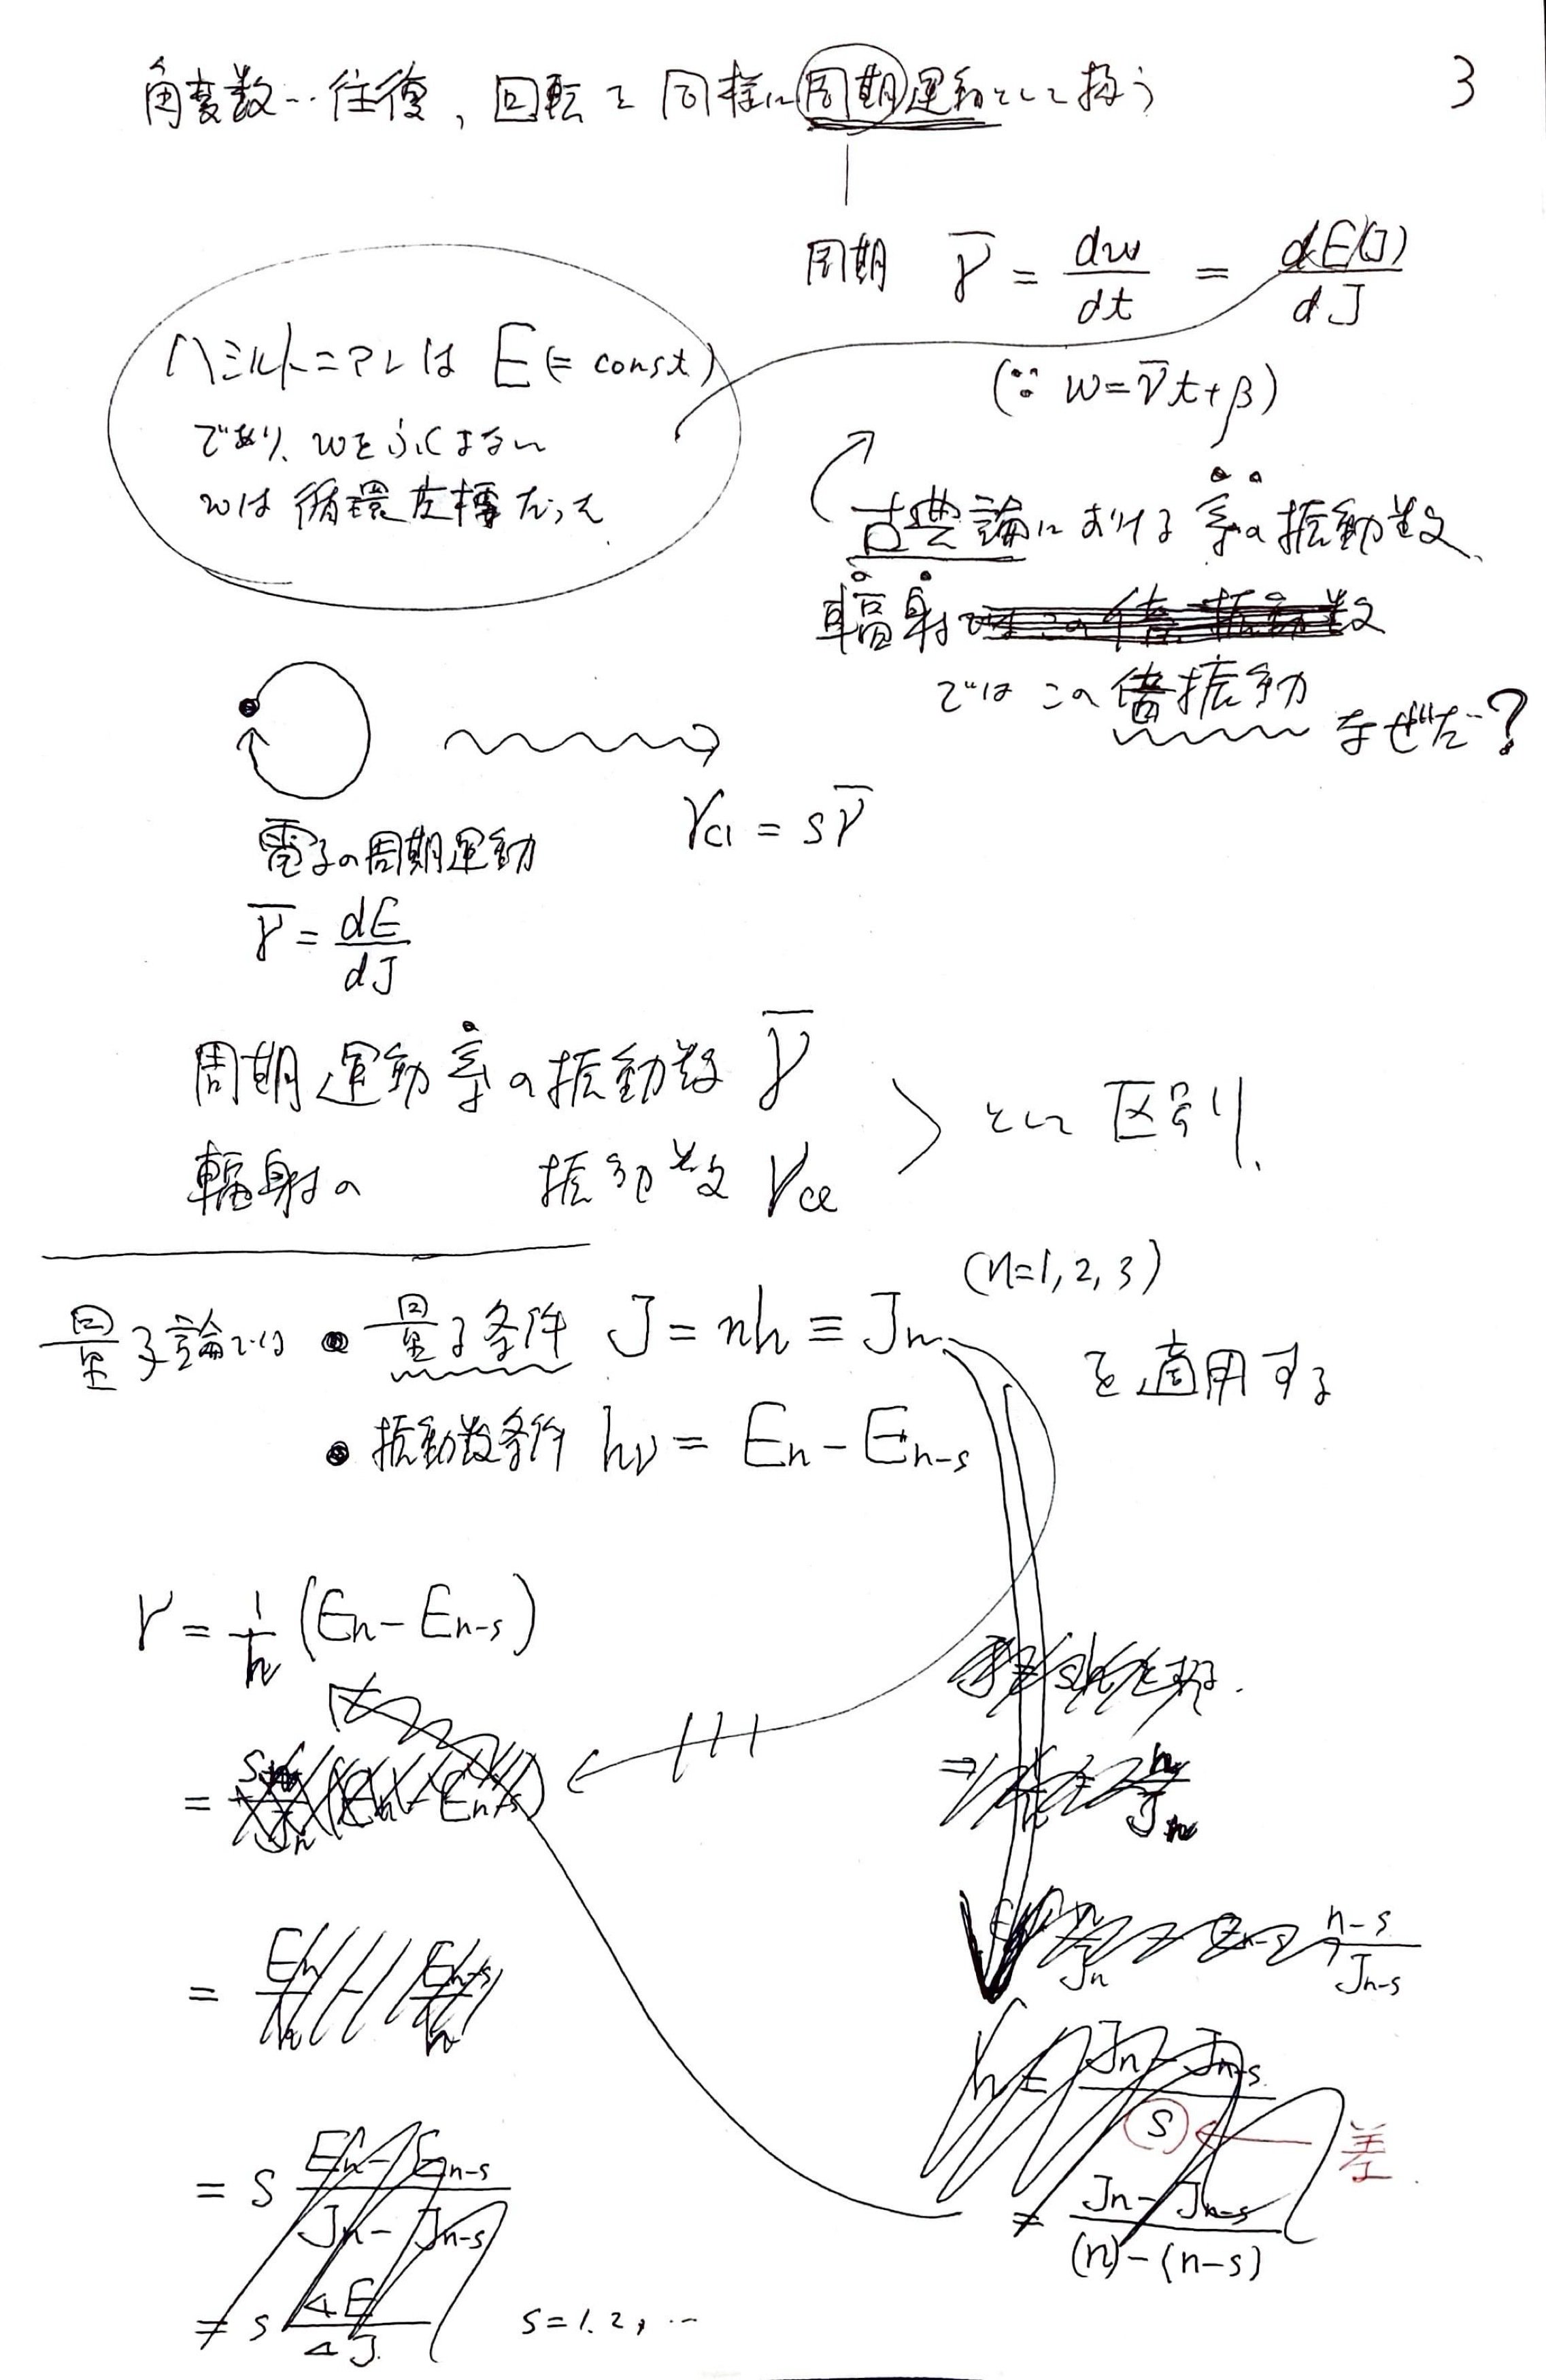 角変数…往復, 回転を同様に周期運動として扱う
3
周期 ν̄ = dw/dt = dE(J)/dJ
(∵ w = ν̄t + β)
ハミルトニアンは E (= const)
であり、wをふくまない
wは循環座標だった
古典論における系の振動数、
輻射
ではこの倍振動 なぜだ?
ν_cl = sν̄
電子の周期運動
ν̄ = dE/dJ
周期運動系の振動数 ν̄
輻射の 振動数 ν_cl
として区別
(n=1, 2, 3)
量子論では • 量子条件 J = nh ≡ Jn
を適用する
• 振動数条件 hν = En − En-s
ν = 1/h (En − En-s)
=
= En/h − En-s/h
= s (En − En-s)/(Jn − Jn-s)
= s ΔE/ΔJ s=1, 2, …
n-s/Jn-s
h = (Jn − Jn-s)/s
差
= (Jn − Jn-s)/((n) − (n-s))